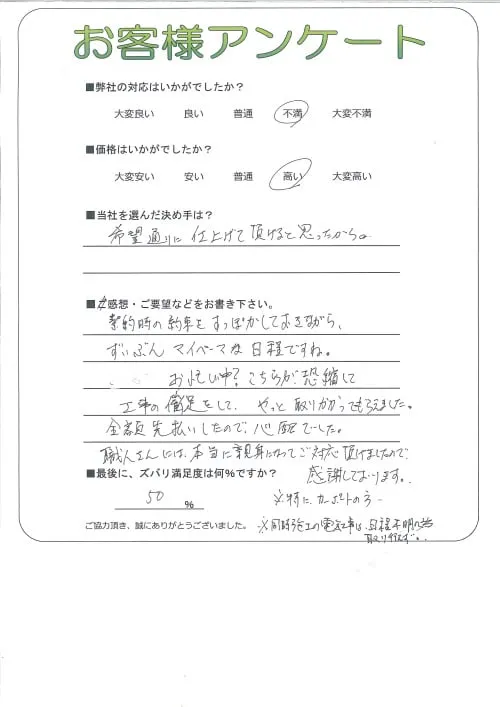 お客様アンケート
■弊社の対応はいかがでしたか？
大変良い 良い 普通 不満 大変不満
■価格はいかがでしたか？
大変安い 安い 普通 高い 大変高い
■当社を選んだ決め手は？
希望通りに仕上げて頂けると思ったから。
■ご感想・ご要望などをお書き下さい。
契約時の約束をすっぽかしておきながら、
ずいぶんマイペースな日程ですね。
お忙し中？こちらが恐縮して
工事の催促をして、やっと取りかかってもらえました。
全額先払いしたので、心配でした。
職人さんには、本当に親身になってご対応頂けましたので、
感謝しております。
■最後に、ズバリ満足度は何%ですか？
50 %
※特に、カーポートの方
ご協力頂き、誠にありがとうございました。
※同時施工の電気工事は、日程不明の為